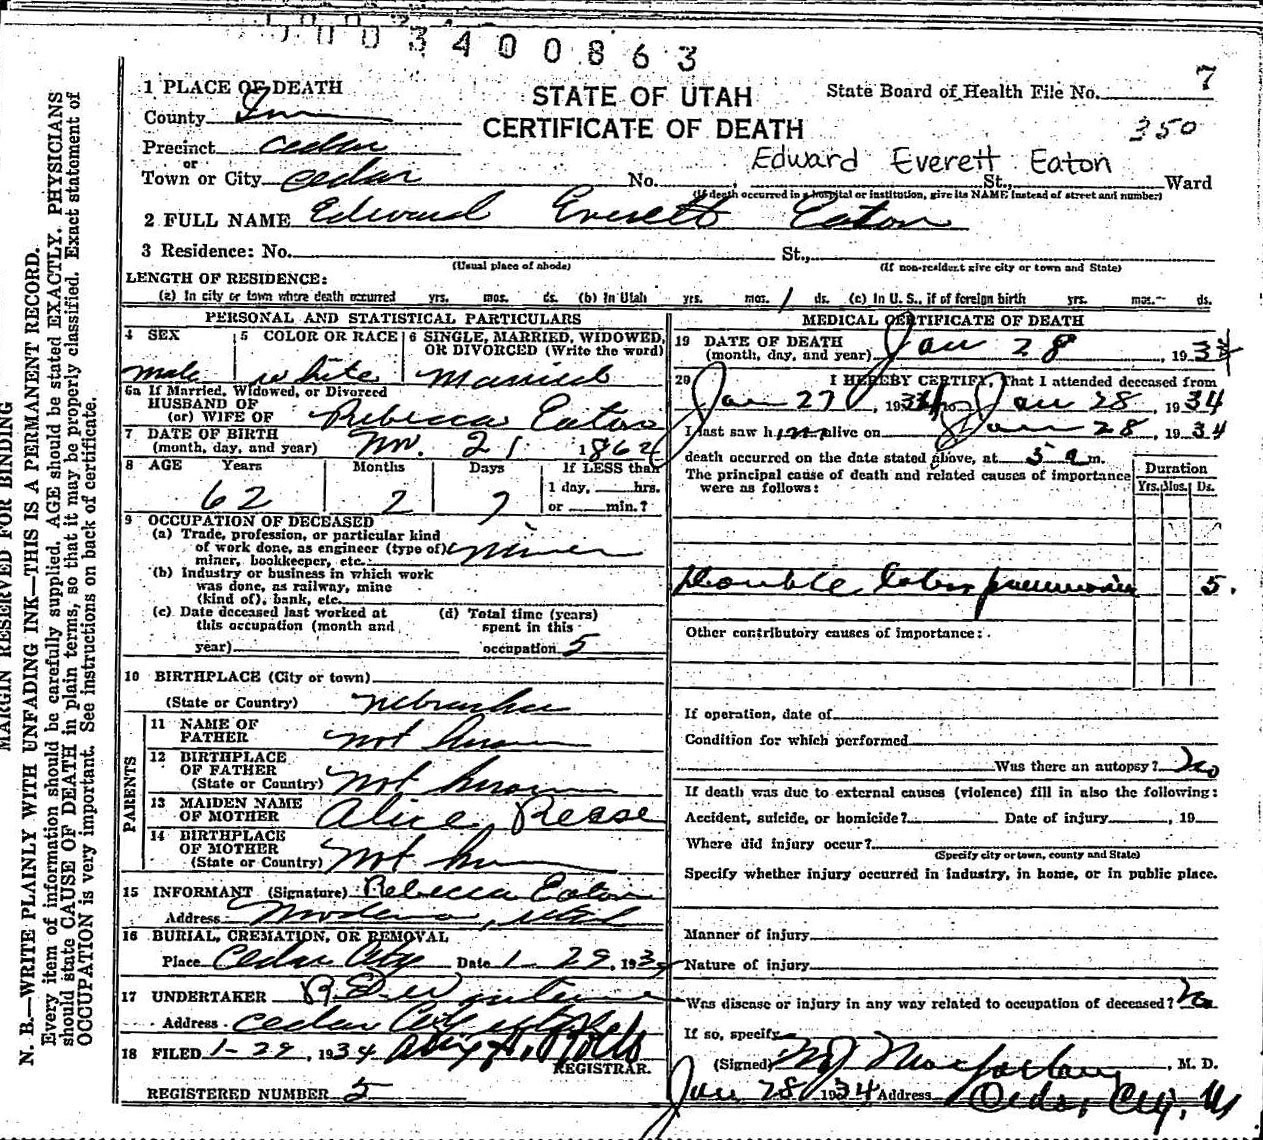 0003400863
1 PLACE OF DEATH
STATE OF UTAH
CERTIFICATE OF DEATH
State Board of Health File No. 7
350
County
Precinct Cedar
or
Town or City Cedar No. St., Ward
Edward Everett Eaton
(If death occurred in a hospital or institution, give its NAME instead of street and number)
2 FULL NAME Edward Everett Eaton
3 Residence: No. St.,
(Usual place of abode) (If non-resident give city or town and State)
LENGTH OF RESIDENCE:
(a) In city or town where death occurred yrs. mos. ds. (b) In Utah yrs. mos. 1 ds. (c) In U. S., if of foreign birth yrs. mos. ds.
PERSONAL AND STATISTICAL PARTICULARS
4 SEX 5 COLOR OR RACE 6 SINGLE, MARRIED, WIDOWED, OR DIVORCED (Write the word)
male white Married
6a If Married, Widowed, or Divorced
HUSBAND OF
(or) WIFE OF Rebecca Eaton
7 DATE OF BIRTH
(month, day, and year) Nov. 21 1862
8 AGE Years Months Days If LESS than
1 day, hrs.
or min.?
62 2 7
9 OCCUPATION OF DECEASED
(a) Trade, profession, or particular kind
of work done, as engineer (type of)
miner, bookkeeper, etc. miner
(b) Industry or business in which work
was done, as railway, mine
(kind of), bank, etc.
(c) Date deceased last worked at
this occupation (month and
year)
(d) Total time (years)
spent in this
occupation 5
10 BIRTHPLACE (City or town)
(State or Country) Nebraska
PARENTS
11 NAME OF
FATHER not known
12 BIRTHPLACE
OF FATHER
(State or Country) not known
13 MAIDEN NAME
OF MOTHER Alice Reese
14 BIRTHPLACE
OF MOTHER
(State or Country) not known
15 INFORMANT (Signature) Rebecca Eaton
Address Modena, Utah
16 BURIAL, CREMATION, OR REMOVAL
Place Cedar City Date 1-29, 1934
17 UNDERTAKER
Address Cedar City
18 FILED 1-29, 1934
REGISTRAR.
REGISTERED NUMBER 5
MEDICAL CERTIFICATE OF DEATH
19 DATE OF DEATH
(month, day, and year) Jan 28, 1934
20 I HEREBY CERTIFY, That I attended deceased from
Jan 27, 1934 to Jan 28, 1934
I last saw him alive on Jan 28, 1934
death occurred on the date stated above, at 5 a m.
The principal cause of death and related causes of importance
were as follows:
Duration
Yrs. Mos. Ds.
Double lobar pneumonia 5.
Other contributory causes of importance:
If operation, date of
Condition for which performed
Was there an autopsy? No
If death was due to external causes (violence) fill in also the following:
Accident, suicide, or homicide? Date of injury , 19
Where did injury occur?
(Specify city or town, county and State)
Specify whether injury occurred in industry, in home, or in public place.
Manner of injury
Nature of injury
Was disease or injury in any way related to occupation of deceased? No
If so, specify
(Signed) Macfarlane, M. D.
Jan 28 1934 Address Cedar City, U
MARGIN RESERVED FOR BINDING
N. B.—WRITE PLAINLY WITH UNFADING INK—THIS IS A PERMANENT RECORD.
Every item of information should be carefully supplied. AGE should be stated EXACTLY. PHYSICIANS
should state CAUSE OF DEATH in plain terms, so that it may be properly classified. Exact statement of
OCCUPATION is very important. See instructions on back of certificate.